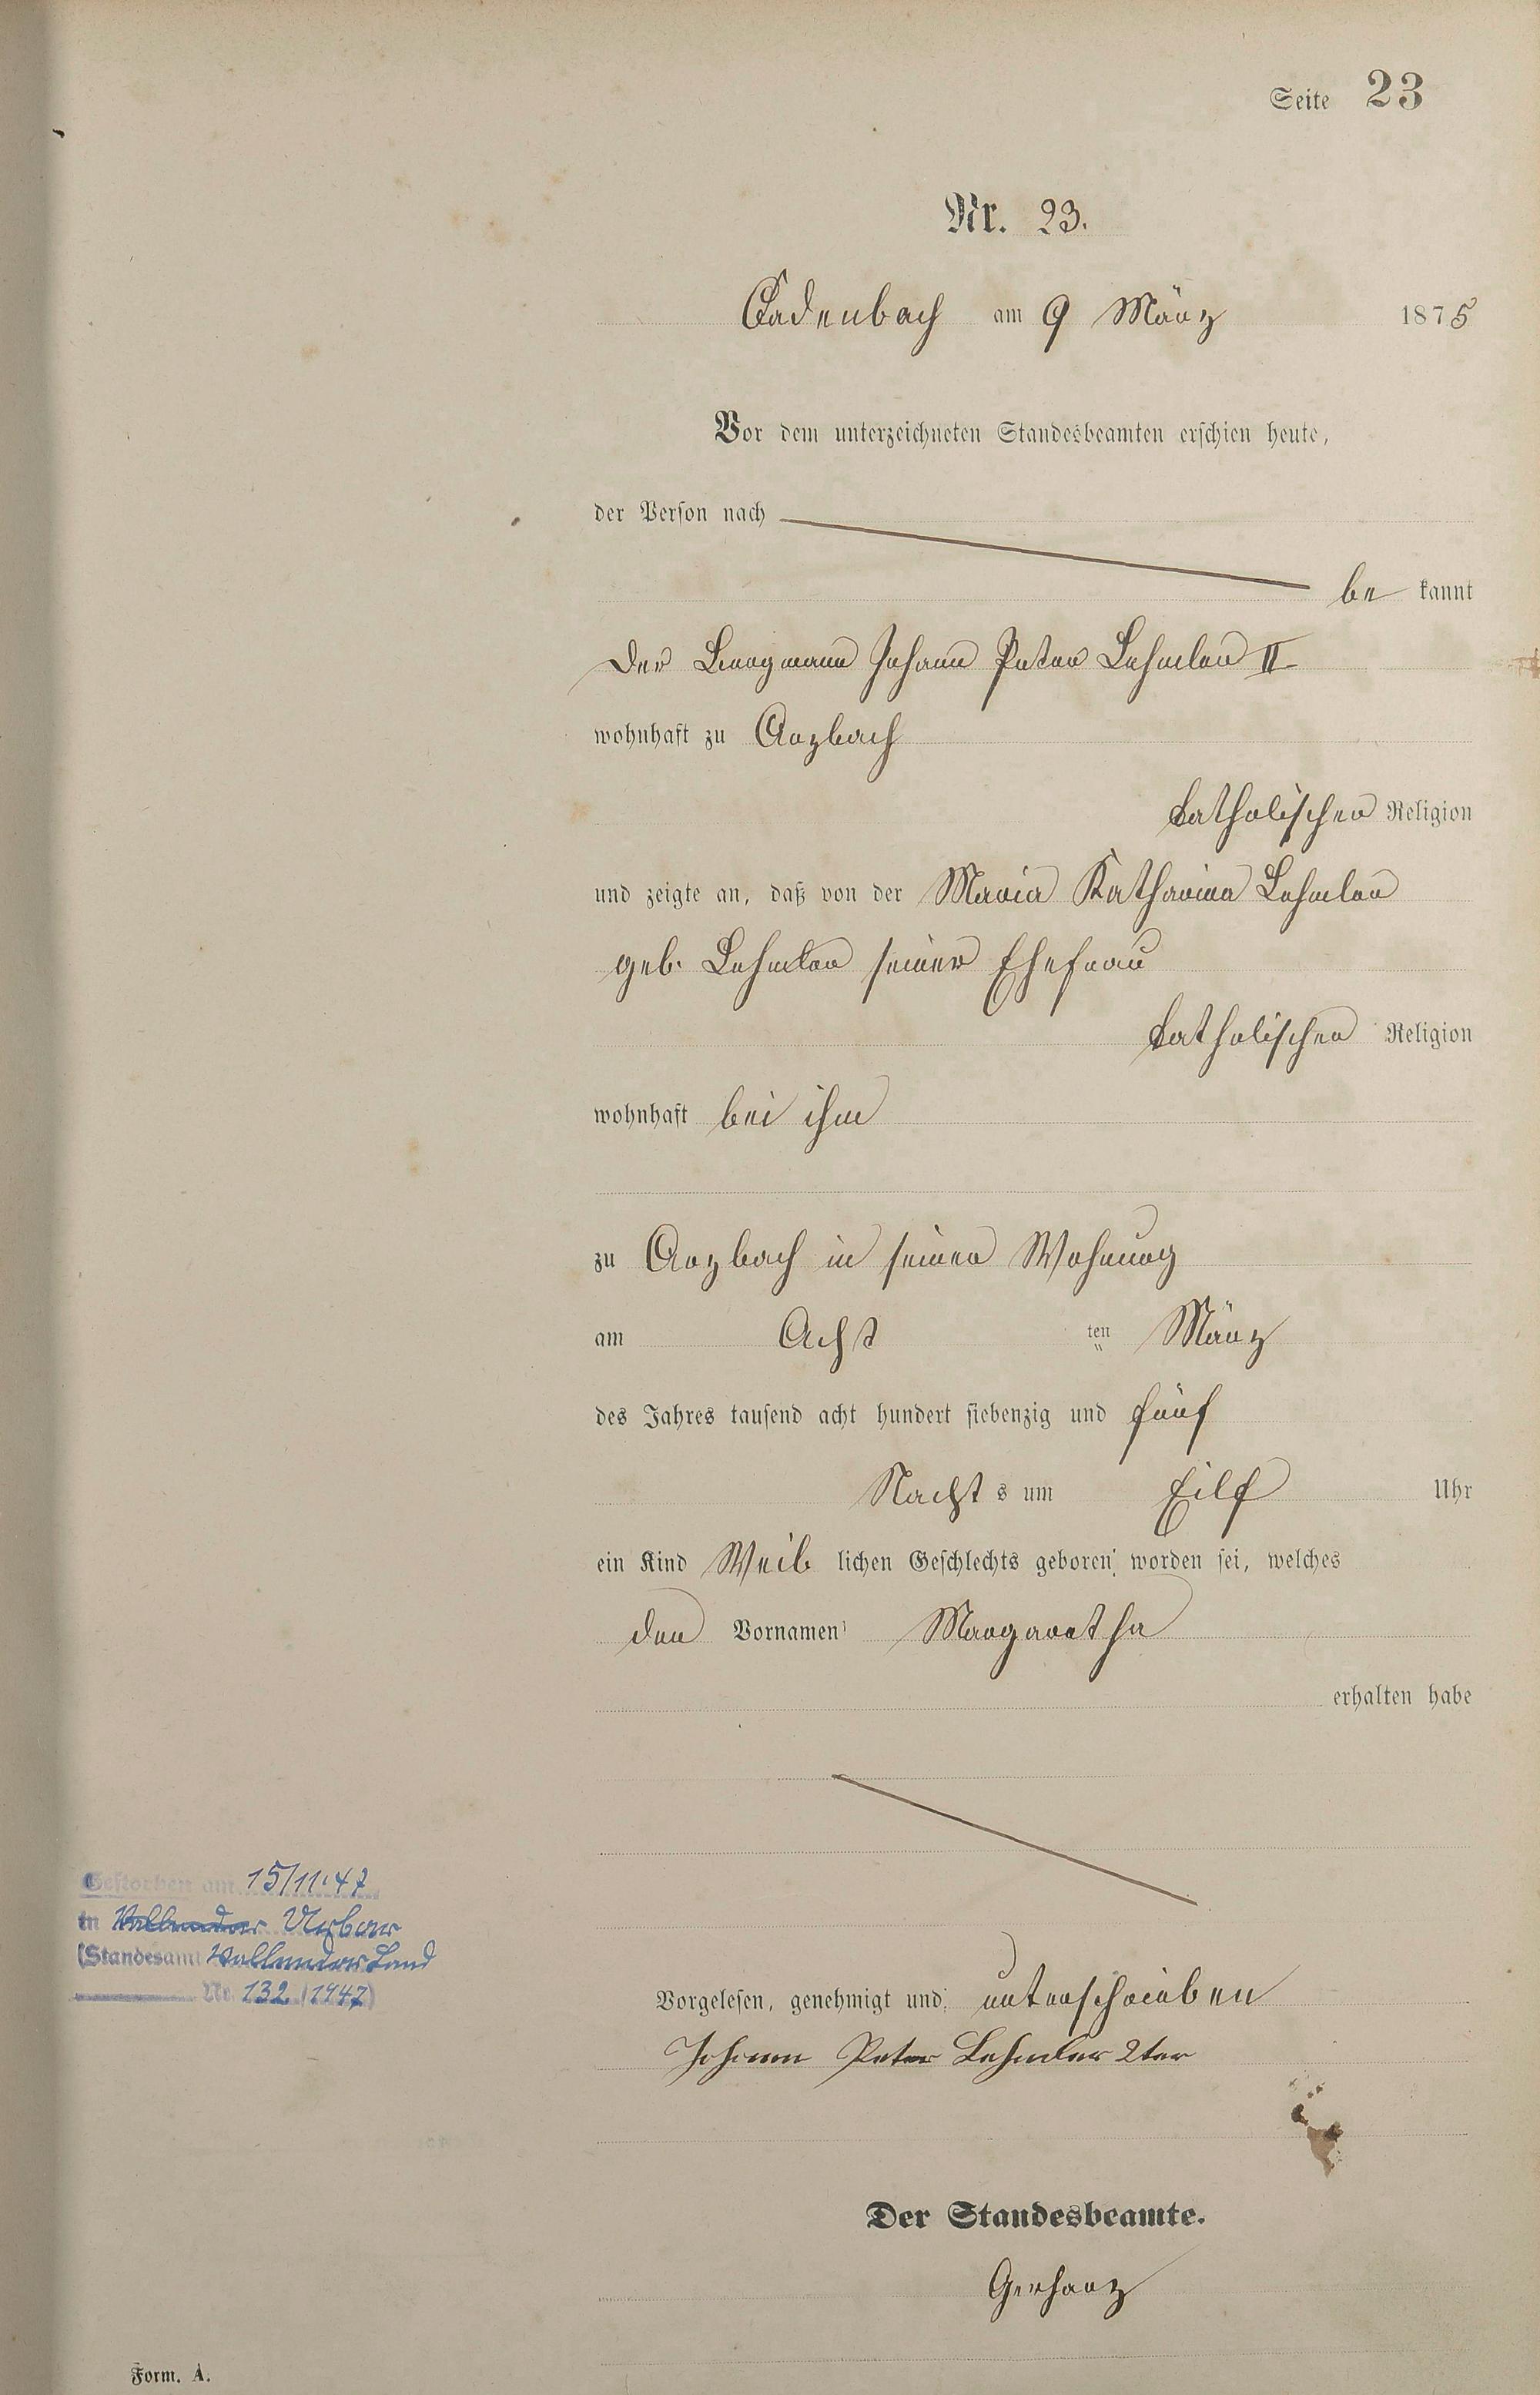 Seite 23
Nr. 23.
Cadenbach am 9 März 1875
Vor dem unterzeichneten Standesbeamten erschien heute,
der Person nach
be kannt
Der Bergmann Johann Peter Lehmler II
wohnhaft zu Arzbach
katholischer Religion
und zeigte an, daß von der Maria Katharina Lehmler
geb. Lehmler seiner Ehefrau
katholischer Religion
wohnhaft bei ihm
zu Arzbach in seiner Wohnung
am Acht ten März
des Jahres tausend acht hundert siebenzig und fünf
Nacht s um Eilf Uhr
ein Kind Weib lichen Geschlechts geboren worden sei, welches
den Vornamen Margaretha
erhalten habe
Gestorben am 15/11.47
in Vallendar Urbar
(Standesamt Vallendar Land
Nr. 132/1947)
Vorgelesen, genehmigt und unterschrieben
Johann Peter Lehmler 2ter
Der Standesbeamte.
Gerharz
Form. A.